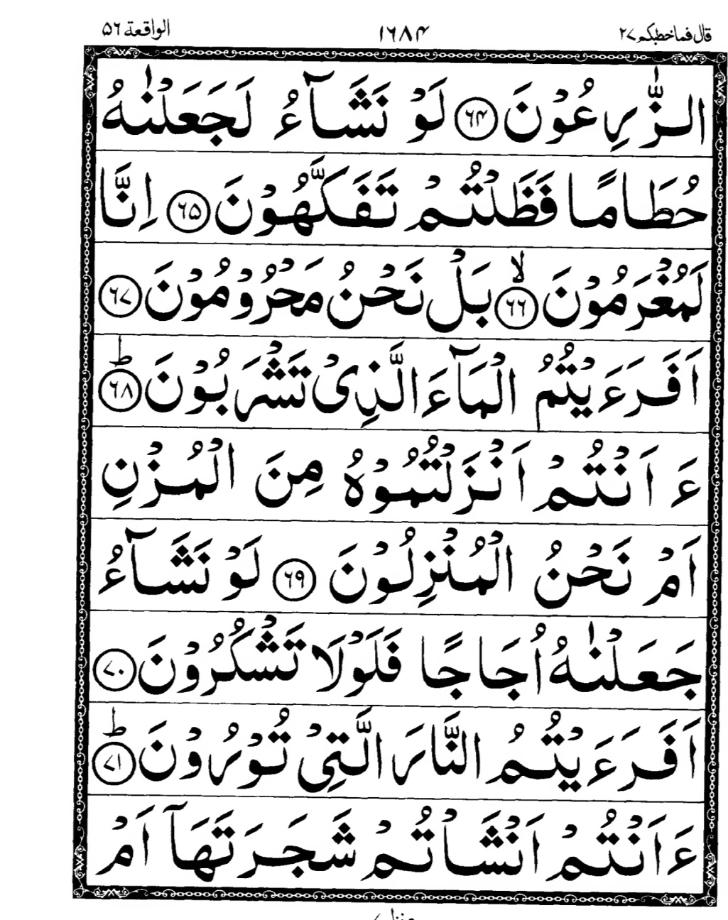 قال فما خطبکم ۲۷ ۱۶۸۴ الواقعة ۵۶
الزّٰرِعُوْنَ ۶۴ لَوْ نَشَآءُ لَجَعَلْنٰهُ
حُطَامًا فَظَلْتُمْ تَفَكَّهُوْنَ ۶۵ اِنَّا
لَمُغْرَمُوْنَ ۶۶ۙ بَلْ نَحْنُ مَحْرُوْمُوْنَ ۶۷
اَفَرَءَيْتُمُ الْمَآءَ الَّذِىْ تَشْرَبُوْنَ ۶۸ؕ
ءَاَنْتُمْ اَنْزَلْتُمُوْهُ مِنَ الْمُزْنِ
اَمْ نَحْنُ الْمُنْزِلُوْنَ ۶۹ لَوْ نَشَآءُ
جَعَلْنٰهُ اُجَاجًا فَلَوْلَا تَشْكُرُوْنَ ۷۰
اَفَرَءَيْتُمُ النَّارَ الَّتِىْ تُوْرُوْنَ ۷۱ؕ
ءَاَنْتُمْ اَنْشَاْتُمْ شَجَرَتَهَآ اَمْ
منزل ۷